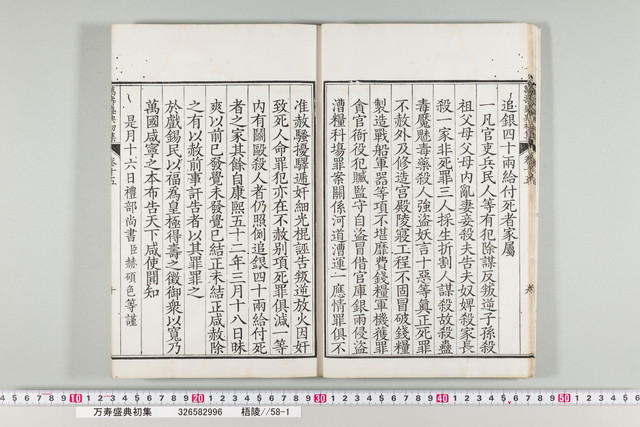 追銀四十兩給付死者家屬
一凡官吏兵民人等有犯除謀反叛逆子孫殺
祖父母父母內亂妻妾殺夫告夫奴婢殺家長
殺一家非死罪三人採生折割人謀殺故殺蠱
毒魘魅毒藥殺人強盜妖言十惡等眞正死罪
不赦外及修造宮殿陵寢工程不固冒破錢糧
製造戰船軍器等項不堪靡費錢糧軍機獲罪
貪官衙役犯贓監守自盜冒借官庫銀兩侵盜
漕糧科場罪案關係河道漕運一應情罪俱不
准赦騷擾驛遞奸細光棍誣告叛逆放火因奸
致死人命罪犯亦在不赦別項死罪俱減一等
內有鬭毆殺人者仍照例追銀四十兩給付死
者之家其餘自康熙五十二年三月十八日昧
爽以前已發覺未發覺已結正未結正咸赦除
之有以赦前事訐告者以其罪罪之
於戲錫民以福為皇極得壽之徵御衆以寬乃
萬國咸寧之本布告天下咸使聞知
是月十六日禮部尚書臣赫碩色等謹
萬壽盛典初集
卷十五
十
万寿盛典初集 326582996 梧陵//58-1
10 20 30 40 50